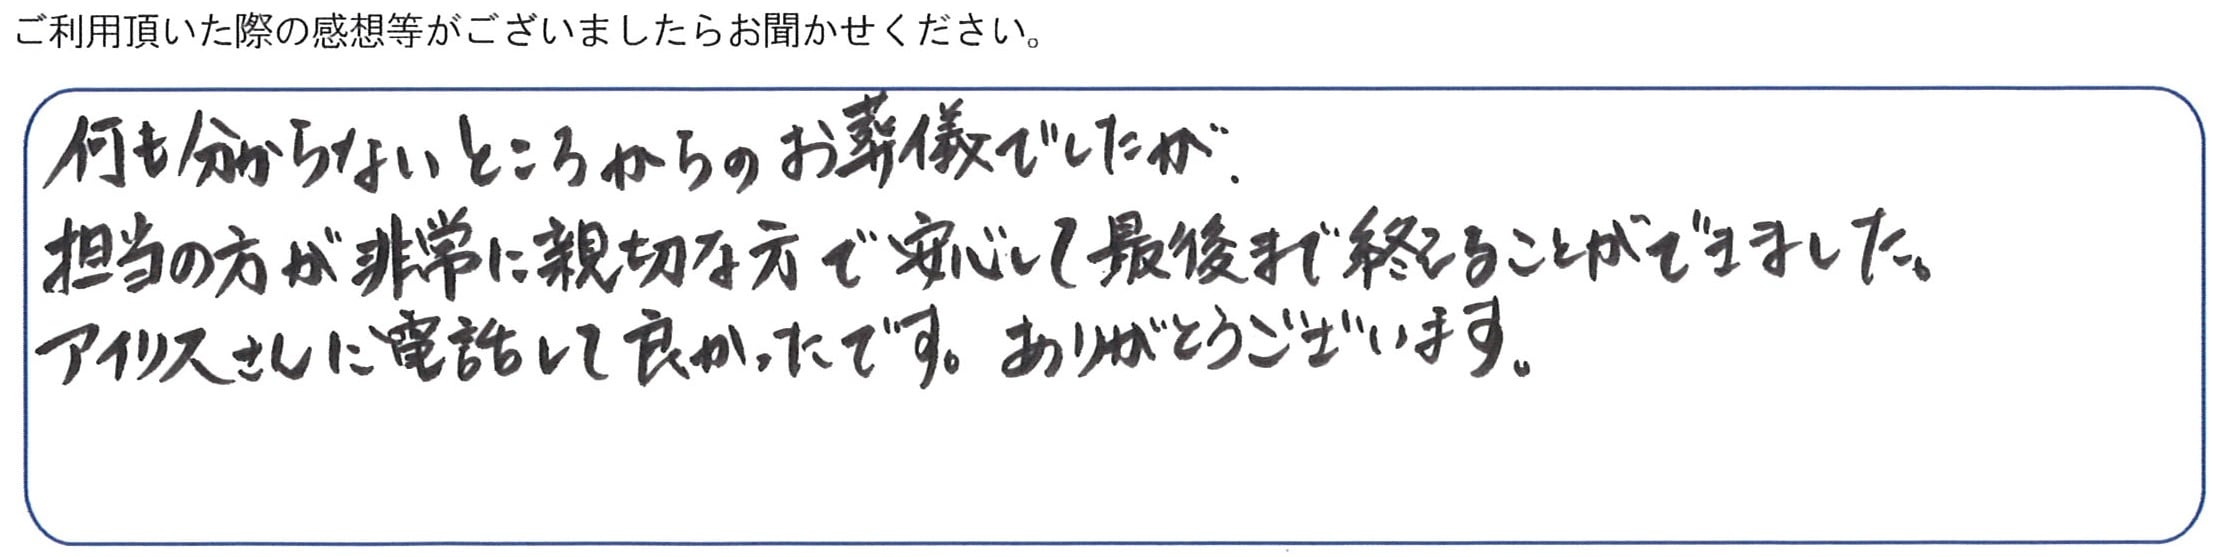 ご利用頂いた際の感想等がございましたらお聞かせください。
何も分からないところからのお葬儀でしたが、
担当の方が非常に親切な方で安心して最後まで終えることができました。
アイリスさんに電話して良かったです。ありがとうございます。